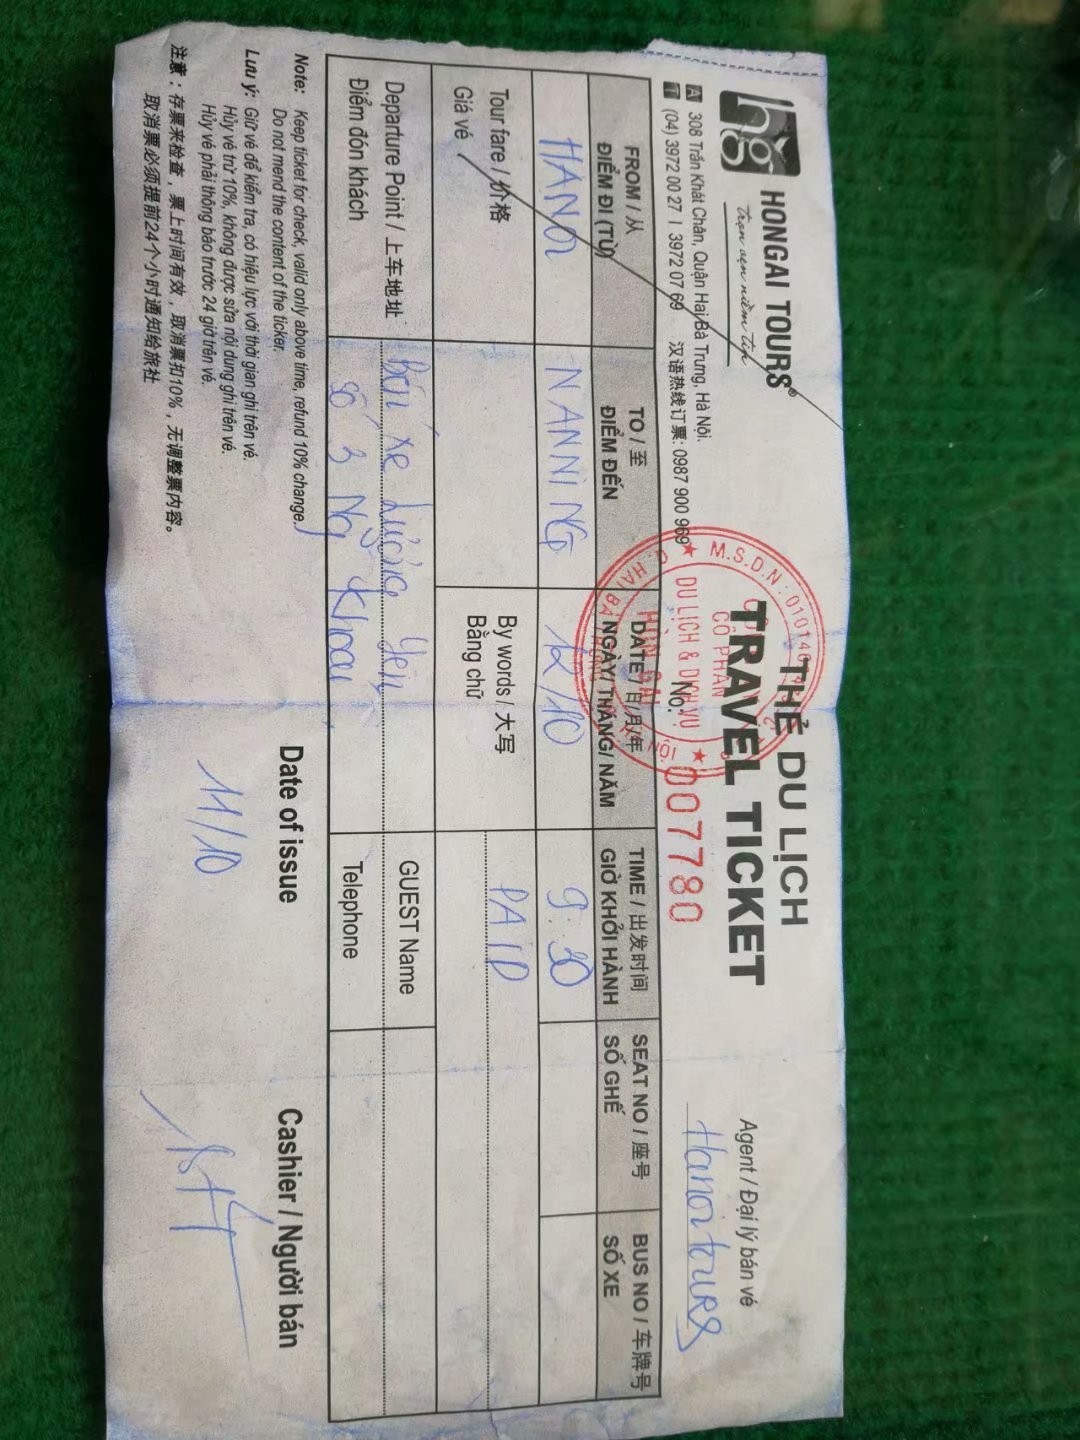 hg HONGAI TOURS®
trọn vẹn niềm tin
THẺ DU LỊCH
TRAVEL TICKET
No: 007780
Agent / Đại lý bán vé
Hanoi tours
A 308 Trần Khát Chân, Quận Hai Bà Trưng, Hà Nội.
T (04) 3972 00 27 I 3972 07 69 汉语热线订票: 0987 900 969
M.S.D.N: 010140
CỔ PHẦN
DU LỊCH & DỊCH VỤ
HÒN GAI
FROM / 从
ĐIỂM ĐI (TỪ)
TO / 至
ĐIỂM ĐẾN
DATE / 日/月/年
NGÀY/ THÁNG/ NĂM
TIME / 出发时间
GIỜ KHỞI HÀNH
SEAT NO / 座号
SỐ GHẾ
BUS NO / 车牌号
SỐ XE
HANOI
NANNING
12/10
9:30
Tour fare / 价格
Giá vé
By words / 大写
Bằng chữ
PAID
Departure Point / 上车地址:
Điểm đón khách
Bến xe Lương Yên
số 3 Ng Khoái
GUEST Name
Telephone
Note: Keep ticket for check, valid only above time, refund 10% change.
Do not mend the content of the ticker.
Lưu ý: Giữ vé để kiểm tra, có hiệu lực với thời gian ghi trên vé.
Hủy vé trừ 10%, không được sửa nội dung ghi trên vé.
Hủy vé phải thông báo trước 24 giờ trên vé.
注意：存票来检查，票上时间有效，取消票扣10%，无调整票内容。
取消票必须提前24个小时通知给旅社
Date of issue
11/10
Cashier / Người bán